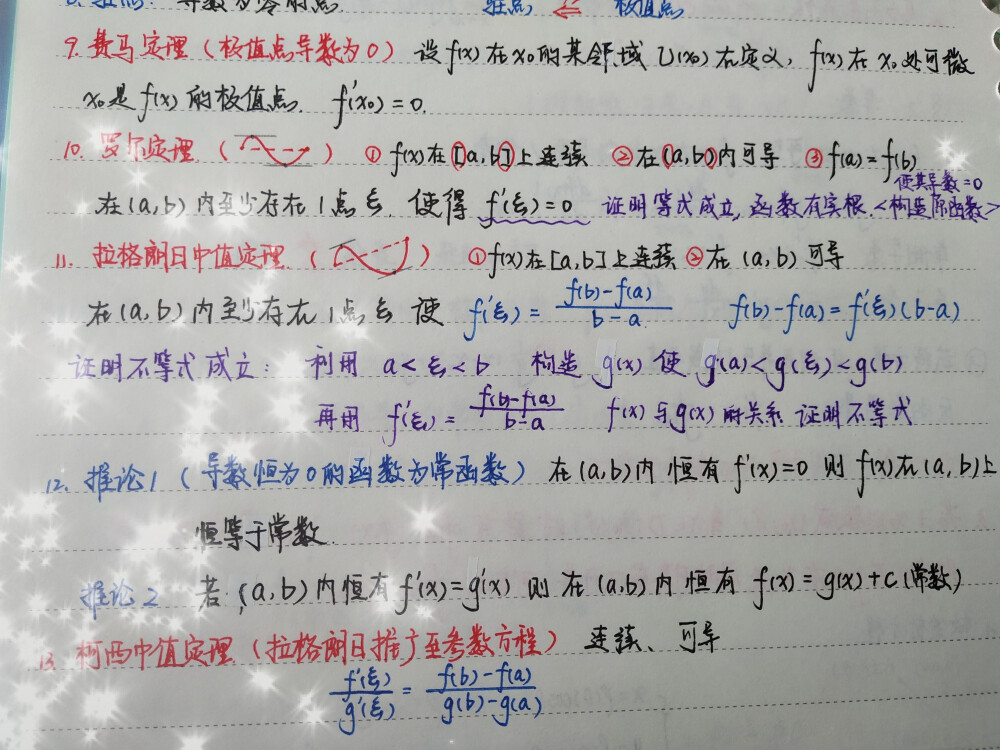 导数为零的点 驻点 ⇐ 极值点
9. 费马定理（极值点导数为0） 设f(x)在x₀的某邻域U(x₀)有定义, f(x)在x₀处可微
x₀是f(x)的极值点. f'(x₀)=0.
10. 罗尔定理（ ） ① f(x)在[a,b]上连续 ②在(a,b)内可导 ③ f(a)=f(b)
使其导数=0
在(a,b)内至少存在1点ξ, 使得 f'(ξ)=0 证明等式成立, 函数有实根.<构造原函数>
11. 拉格朗日中值定理（ ） ①f(x)在[a,b]上连续 ②在(a,b)可导
在(a,b)内至少存在1点ξ 使 f'(ξ)=\frac{f(b)-f(a)}{b-a} f(b)-f(a)=f'(ξ)(b-a)
证明不等式成立: 利用 a<ξ<b 构造g(x) 使 g(a)<g(ξ)<g(b)
再用 f'(ξ)=\frac{f(b)-f(a)}{b-a} f(x)与g(x)的关系 证明不等式
12. 推论1（导数恒为0的函数为常函数） 在(a,b)内 恒有f'(x)=0 则 f(x)在(a,b)上
恒等于常数
推论2 若(a,b)内恒有f'(x)=g'(x) 则在(a,b)内恒有 f(x)=g(x)+C(常数)
13. 柯西中值定理（拉格朗日推广至参数方程） 连续、可导
\frac{f'(ξ)}{g'(ξ)}=\frac{f(b)-f(a)}{g(b)-g(a)}